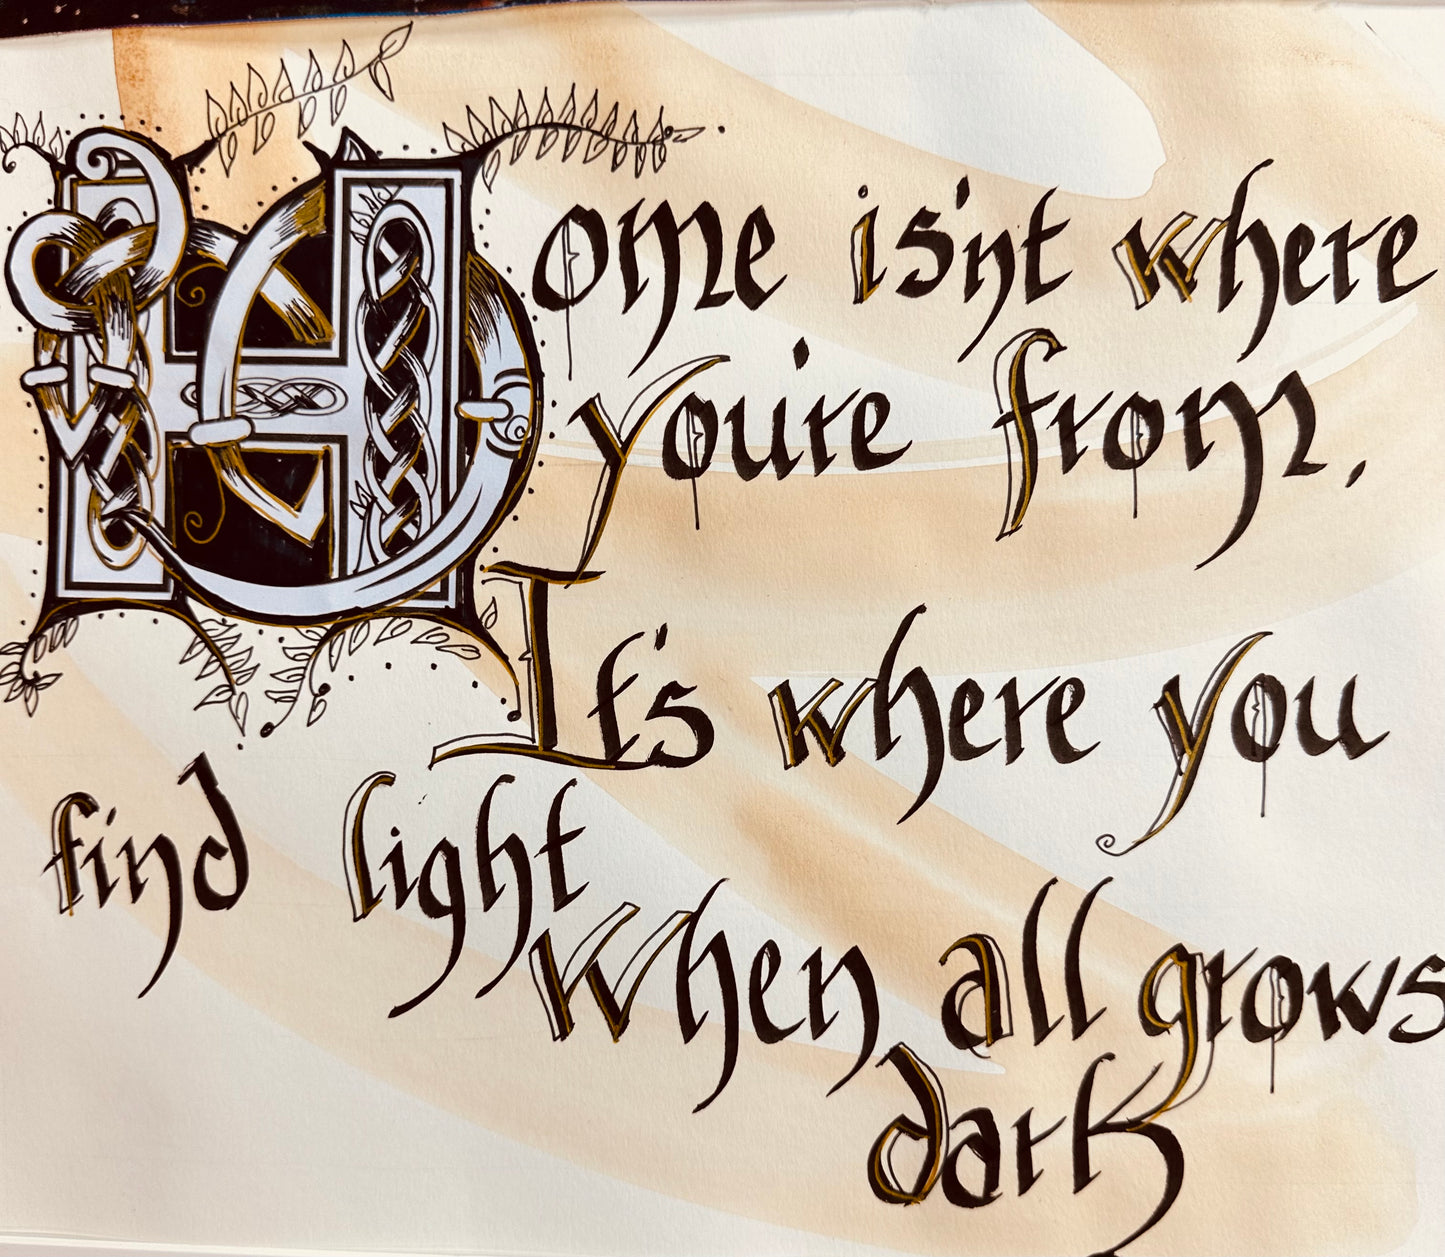 Home is'nt where
you're from,
It's where you
find light
when all grows
dark